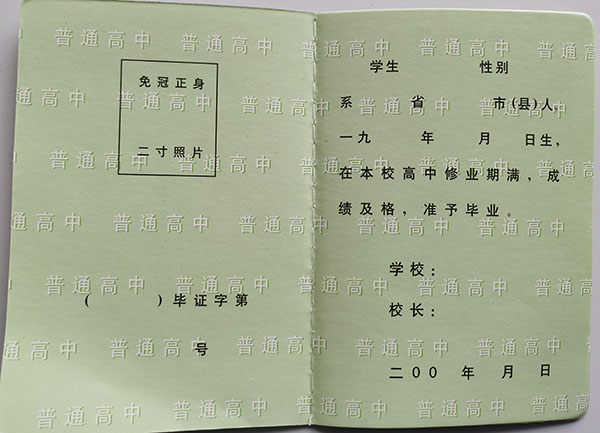 免冠正身
二寸照片
( )毕证字第
号
学生 性别
系 省 市(县)人,
一九 年 月 日生,
在本校高中修业期满,成
绩及格,准予毕业。
学校:
校长:
二00 年 月 日
普通高中